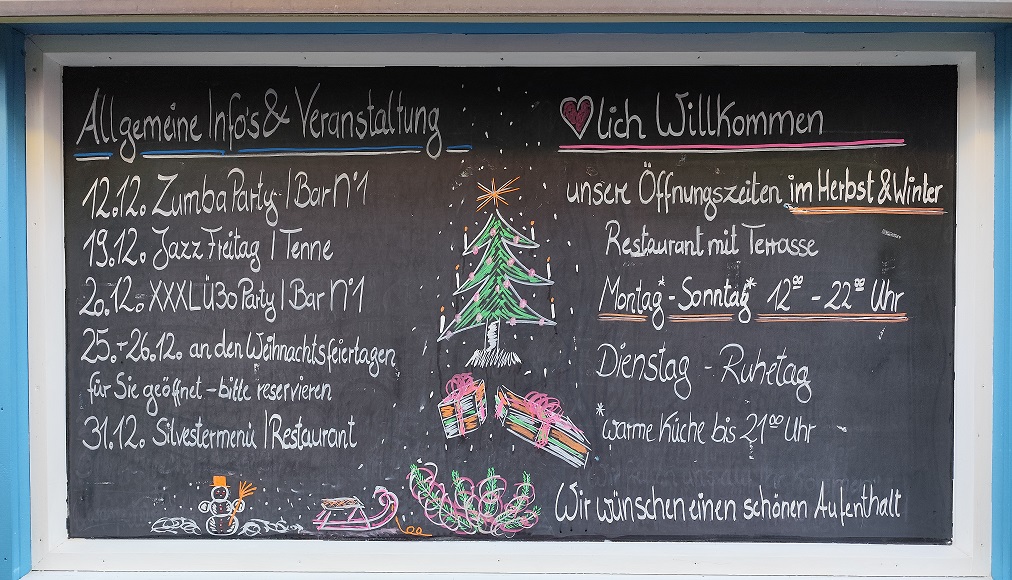 Allgemeine Info's & Veranstaltung
12.12. Zumba Party | Bar N°1
19.12. Jazz Freitag | Tenne
20.12. XXXLÜ30 Party | Bar N°1
25.-26.12. an den Weihnachtsfeiertagen
für Sie geöffnet - bitte reservieren
31.12. Silvestermenü | Restaurant
♥lich Willkommen
unsere Öffnungszeiten im Herbst & Winter
Restaurant mit Terrasse
Montag* - Sonntag* 12°° - 22°° Uhr
Dienstag - Ruhetag
*
warme Küche bis 21°° Uhr
Wir wünschen einen schönen Aufenthalt